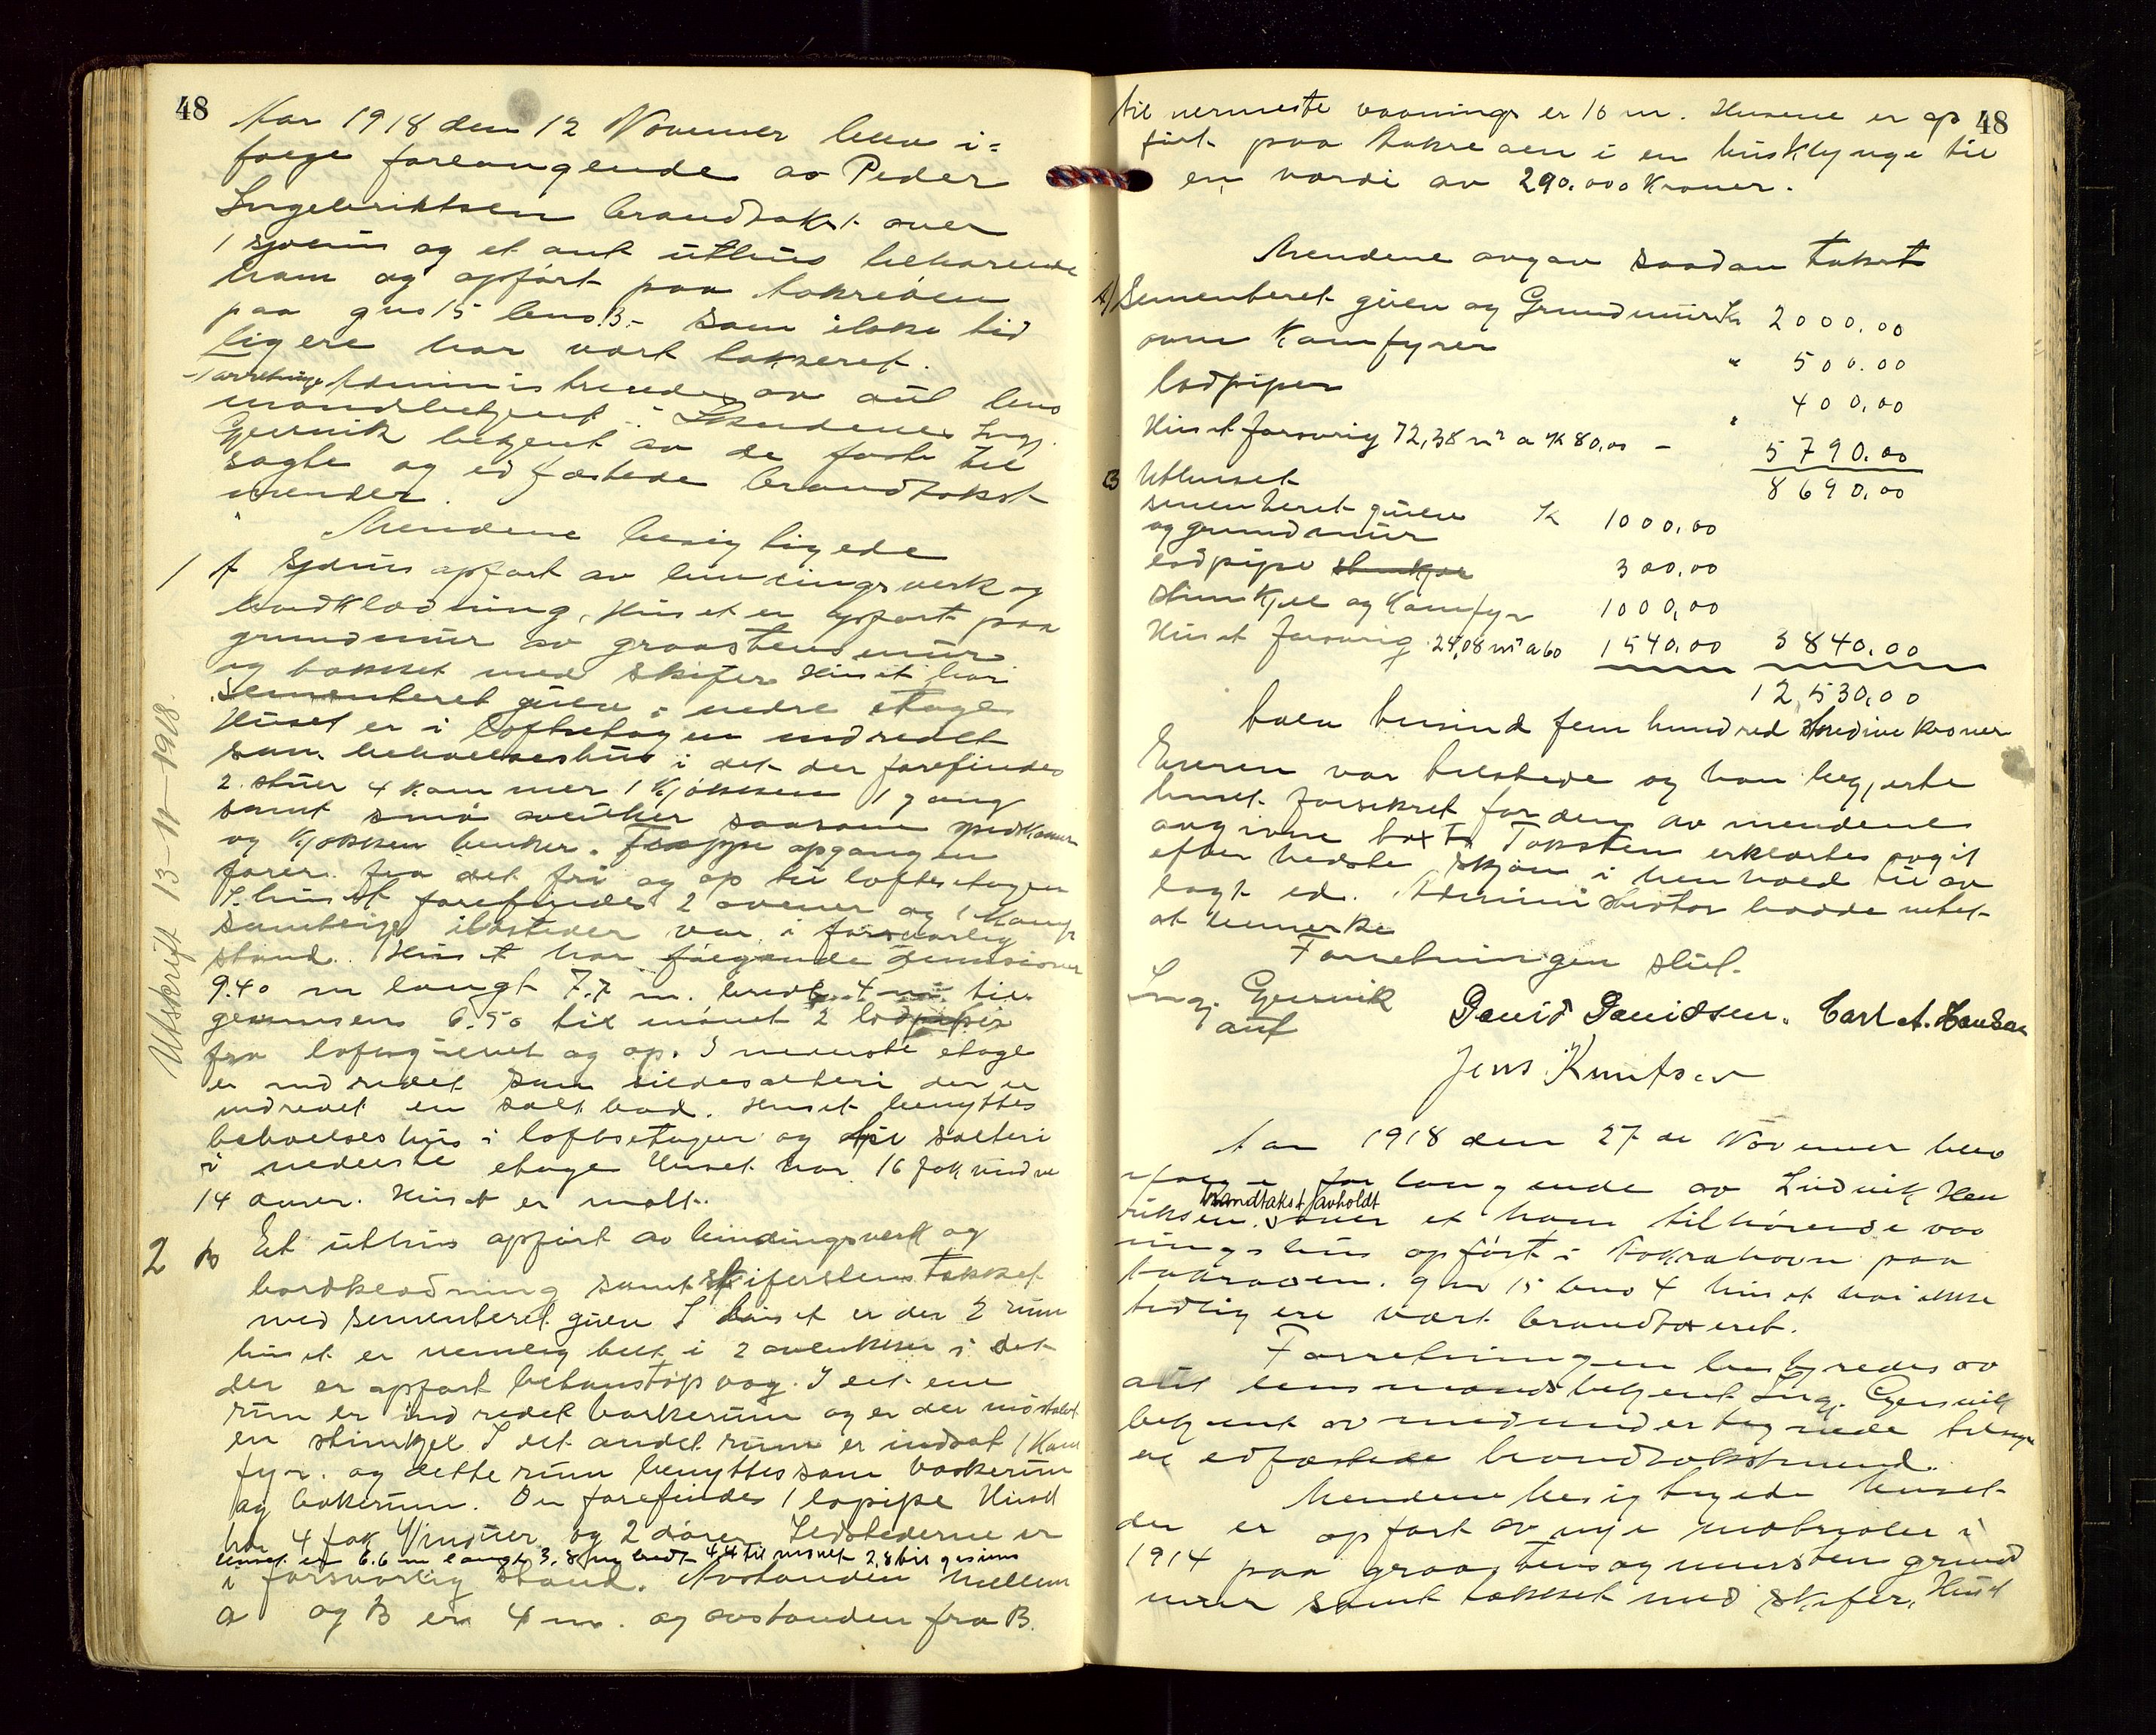 48
Aar 1918 den 12 November blev i=
følge forlangende av Peder
Ingebriktsen brandtakst over
1 sjøhus og et ant uthus tilhørende
ham og opført paa Aakreøen
paa gno 15 bno 3.- som ikke tid
ligere har vært takseret.
Forretningen Administreredes av aut lens
mandsbetjent i Skudenes Ingj.
Gjersvik betjent av de faste til
sagte og edfæstede brandtakst
mender.
Mendene besigtigede
1 A Sjøhus opført av bindingsverk og
bordklædning, Huset er opført paa
grundmur av graastensmur
og tækket med skifer Huset har
sementeret gulv i nedre etage
Huset er i loftsetagen indredet
som beboelseshus i det der forefindes
2 stuer 4 kammer 1 kjøkken 1 gang
samt små avlukker saasom spiskamer
og kjøkken benker. Trappe opgangen
fører fra det fri og op til loftsetagen
I huset forefindes 2 ovener og 1 Komf
samtlige ildsteder var i forsvarlig
stand. Huset har følgende dimensioner
9.40 m langt 7.7 m. bredt 4 m til
gesimsen 6.50 til mønet 2 lodpiper
fra loftsgulvet og op. I nederste etage
er indredet som sildesalteri der er
indredet en salt bod. Huset benyttes
beboelseshus i loftsetagen og til salteri
i nederste etage Huset har 16 fak vindue
14 dører. Huset er malt.
Utskrift 13-11-1918.
2 B Et uthus opført av bindingsverk og
bordklædning samt skiferstens tækket
med sementeret gulv I huset er der 2 rum
huset er nemlig delt i 2 avlukker i det
der er opført betonstøp væg. I det ene
rum er indredet barkerum og er der indstalert
en stimkjel I det andet rum er indsat 1 Kom
fyr. og dette rum benyttes som vaskerum
og bakerum. Der forefindes 1 lopipe Huset
har 4 fak Vinduer og 2 dører Ildstederne er
huset er 6.6 m langt 3.8 m bredt 4.4 til mønet 2,8 til gesims
i forsvarlig stand. Avstanden mellem
a og B er 4 m. og avstanden fra B.
48
til nermeste vaanings er 16 m. Husene er op
ført paa Aakreøen i en husklynge til
en værdi av 290.000 Kroner.
Mendene avgav saadan takst
A) Sementeret gulv og Grundmur Kr 2000.00
ovne Komfyrer " 500.00
lodpiper " 400,00
Huset forøvrig 72,38 m² a K 80,00 - 5790.00
8690,00
B Uthuset
sementeret gulv K 1000,00
og grundmur
lodpipe 300,00
stimkjel og Komfyr 1000,00
Huset forøvrig 24,08 m² a 60 1540,00 3840.00
12,530,00
tolv tusind fem hundred tredive kroner
Eieren var tilstede og han begjærte
huset forsikret for den av mendene
avgivne taxt Taksten erklærtes avgit
efter bedste skjøn i henhold til av
lagt ed. Administrator hadde intet
at bemerke
Forretningen slut.
Ing. Gjersvik
auf
David Davidsen. Carl A. Hansen
Jens Knutsen
Aar 1918 den 27 de November blev
ifølge forlangende av Ludvik Hen
riksen brandtakst avholdt over et ham tilhørende vaa
ningshus opført i Aakrahavn paa
Aakraøen. gno 15 bno 4 huset har ikke
tidligere vært brandtaxeret.
Forretningen bestyredes av
aut lensmandsbetjent Ing. Gjersvik
betjent av medundertegnede tilnævn
te edfæstede brandtakstmend.
Mendene besigtigede huset
der er opført av nye matrialer i
1914 paa graastens og mursten grund
mur samt tækket med skifer, Huset